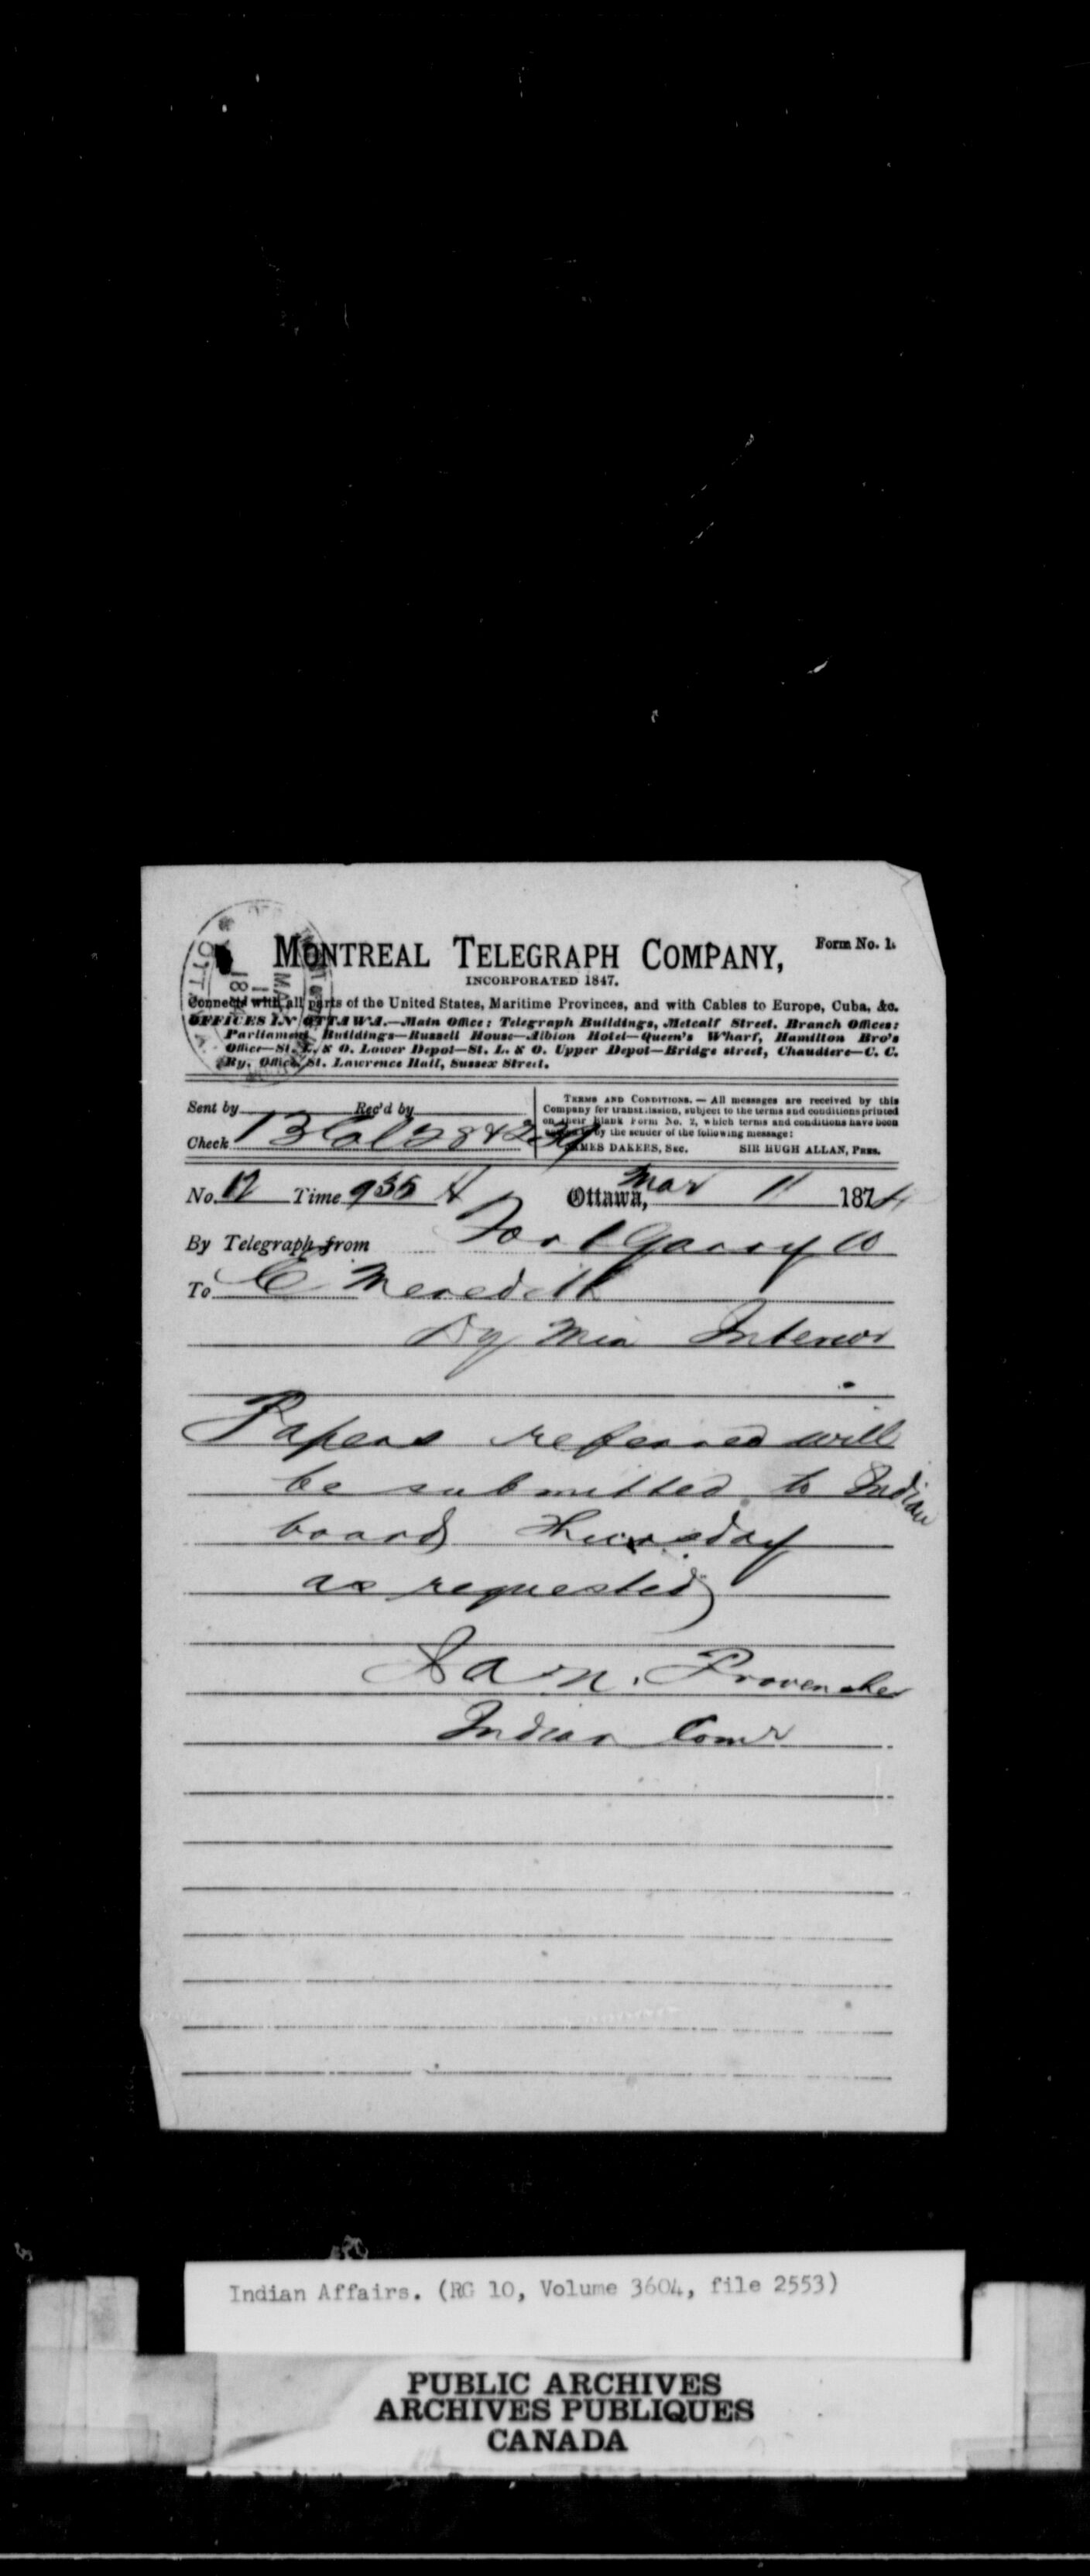 Form No. 1.
MONTREAL TELEGRAPH COMPANY,
INCORPORATED 1847.
Connects with all parts of the United States, Maritime Provinces, and with Cables to Europe, Cuba, &c.
OFFICES IN OTTAWA.—Main Office: Telegraph Buildings, Metcalf Street. Branch Offices:
Parliament Buildings—Russell House—Albion Hotel—Queen's Wharf, Hamilton Bro's
Office—St. L. & O. Lower Depot—St. L. & O. Upper Depot—Bridge street, Chaudiere—C. C.
Ry. Office, St. Lawrence Hall, Sussex Street.
Sent by Rec'd by
Check
TERMS AND CONDITIONS. — All messages are received by this
Company for transmission, subject to the terms and conditions printed
on their Blank Form No. 2, which terms and conditions have been
by the sender of the following message:
JAMES DAKERS, SEC. SIR HUGH ALLAN, PRES.
No. 12 Time 935 Ottawa, Mar 11 1874
By Telegraph from Fort Garry
To Meredith
Dy Min Interior
Papers referred will
be submitted to Indian
board Thursday
as requested
Provencher
Indian Comr
Indian Affairs. (RG 10, Volume 3604, file 2553)
PUBLIC ARCHIVES
ARCHIVES PUBLIQUES
CANADA